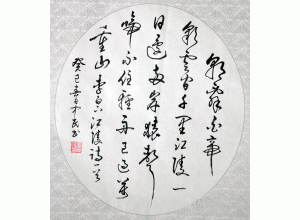 朝辞白帝
彩云间千里江陵一
日还两岸猿声
啼不住轻舟已过万
重山李白江陵诗一首
癸巳春月